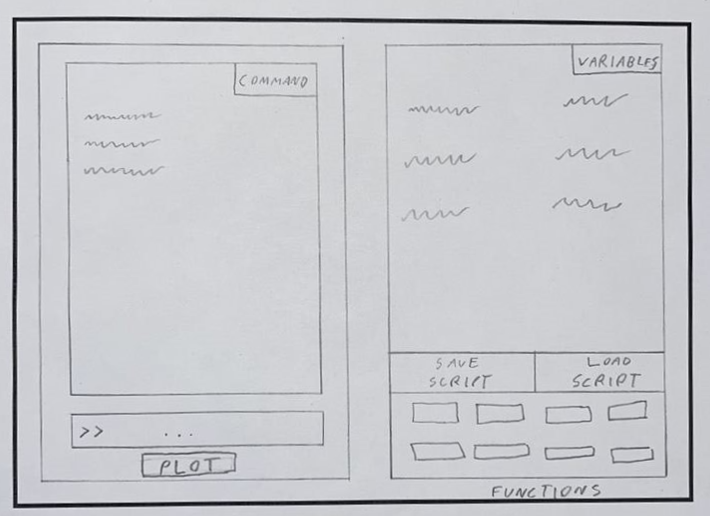 COMMAND
>> ...
PLOT
VARIABLES
SAVE
SCRIPT
LOAD
SCRIPT
FUNCTIONS